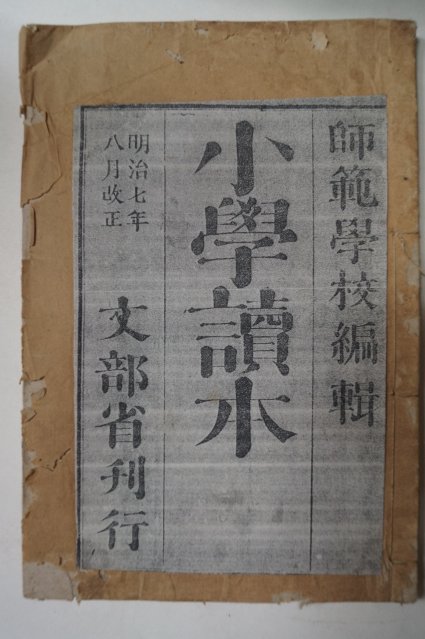 師範學校編輯
小學讀本
明治七年
八月改正
文部省刋行